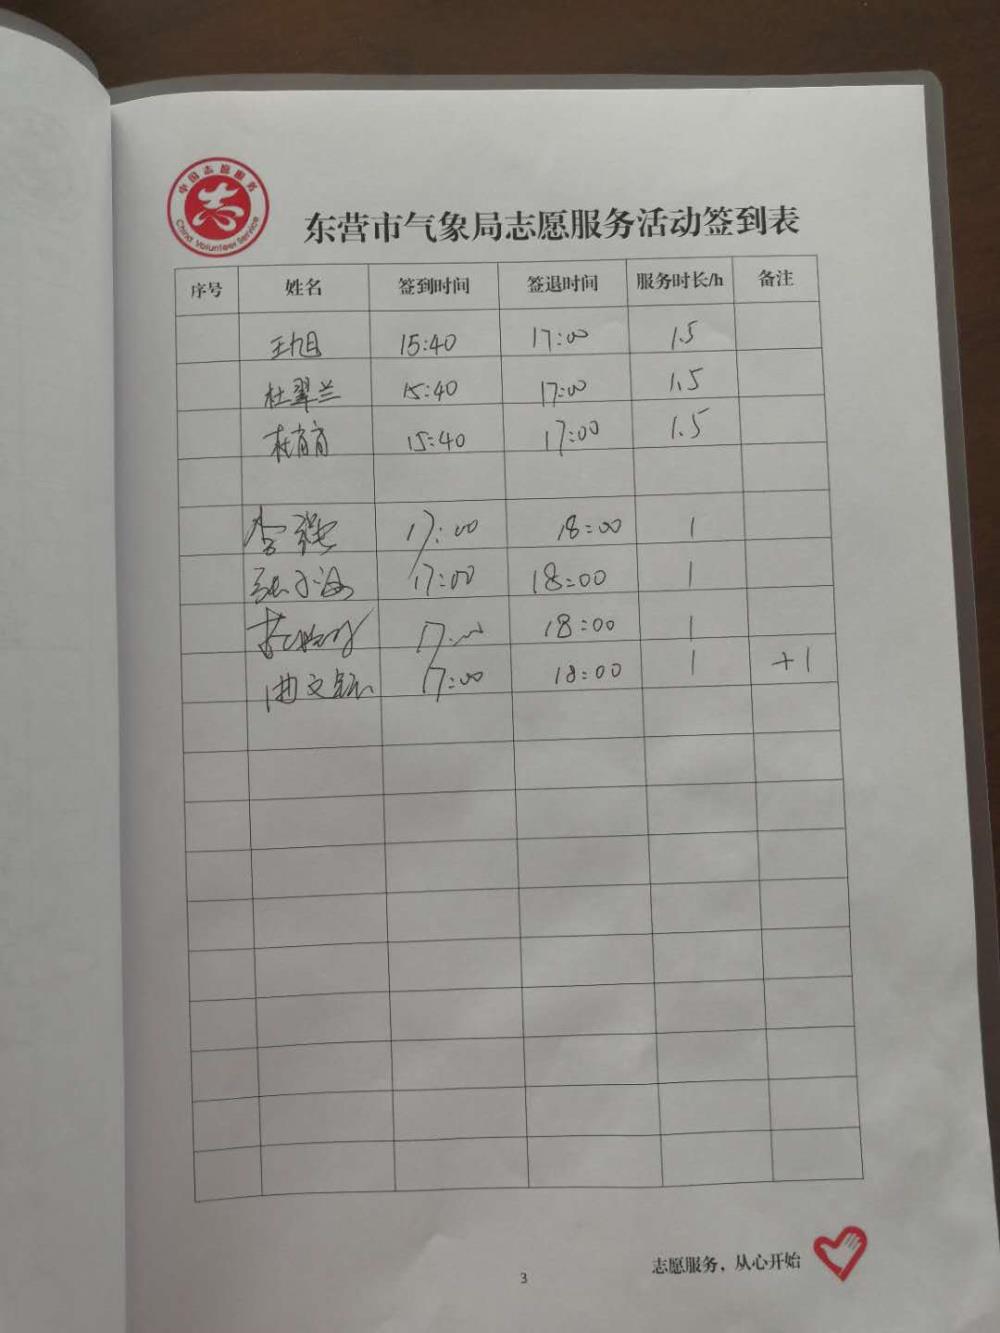 中国志愿服务
志
China Volunteer Service
东营市气象局志愿服务活动签到表
序号 姓名 签到时间 签退时间 服务时长/h 备注
王旭 15:40 17:00 1.5
杜翠兰 15:40 17:00 1.5
杜育育 15:40 17:00 1.5
李强 17:00 18:00 1
张小海 17:00 18:00 1
17:00 18:00 1
曲文 17:00 18:00 1 +1
志愿服务，从心开始
3